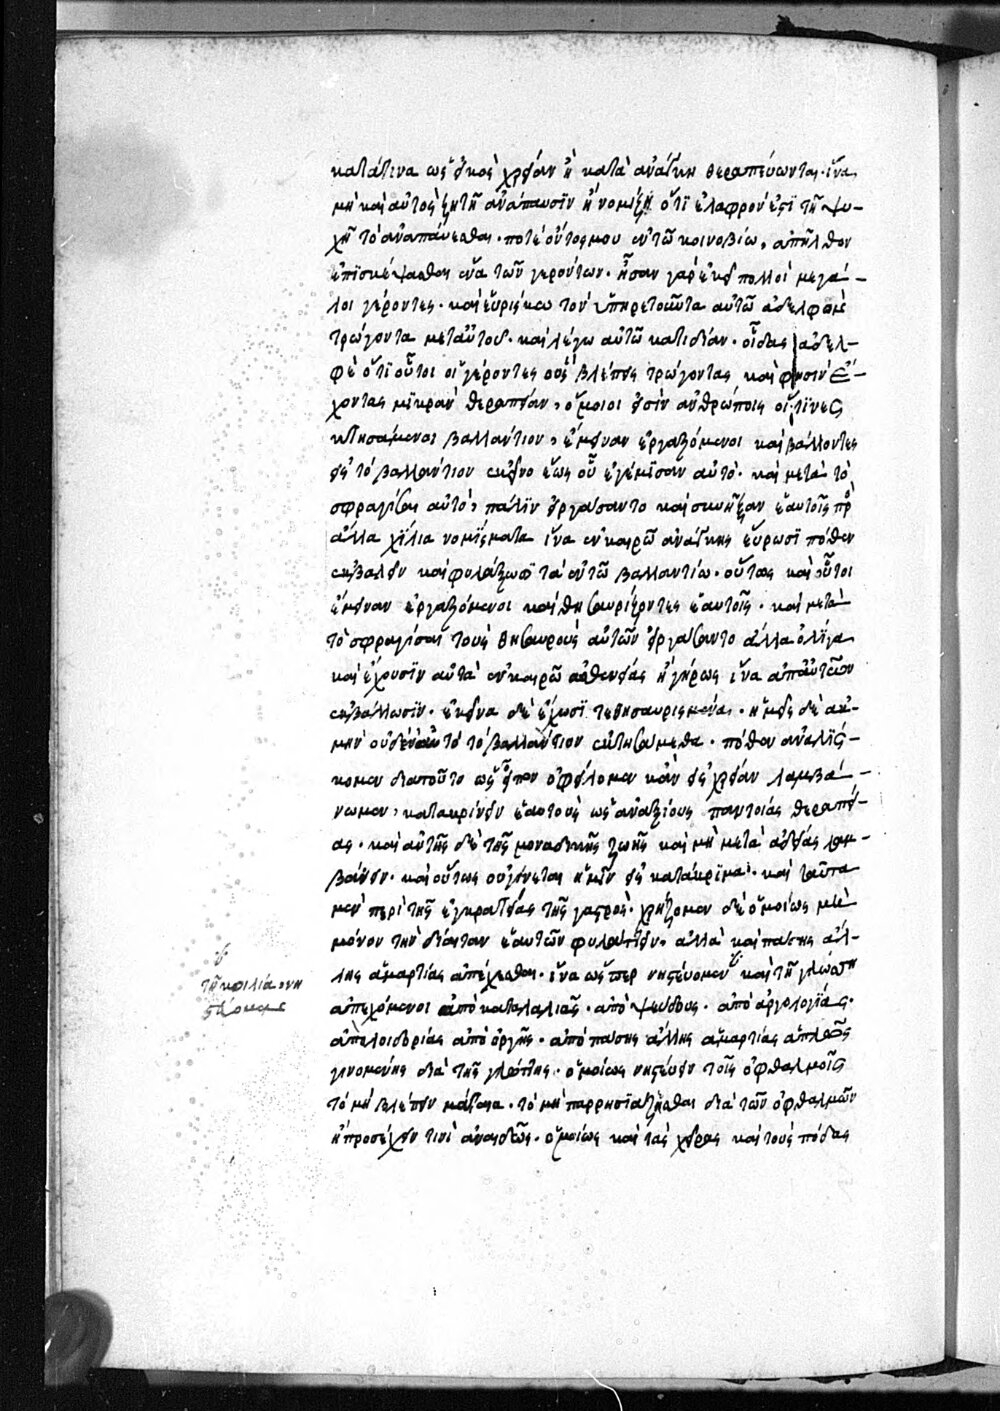 κατάτινα ὡς εἰκὸς χρείαν ἢ κατὰ ἀνάγκη θεραπεύωνται· ἵνα
μὴ καὶ αὐτὸς ζητῆ ἀνάπαυσϊν ἢ νομίζη ὅτϊ ἐλαφρὸν ἐςϊ τῆ ψυ-
χῆ τὸ ἀναπαύεσθαι· ποτὲ οὖν τός μου ἐν τῶ κοινοβίω, ἀπῆλθον
ἐπϊσκέψασθαι ἕνα τῶν γερόντων· ἦσαν γὰρ ἐκεῖ πολλοὶ μεγά-
λοι γέροντες· καὶ εὑρίσκω τὸν ὑπηρετοῦντα αὐτῶ ἀδελφὸν
τρώγοντα μετ αὐτοῦ· καὶ λέγω αὐτῶ κατιδίαν· οἶδας ἀδελ-
φὲ ὅτϊ οὗτοι οἱ γέροντες οὓς βλέπεις τρώγοντας καὶ φησὶν ἔ-
χοντας μϊκρὰν θεραπείαν, ὅμοιοι εἰσὶν ἀνθρώποις οἵτϊνες
κτησάμενοι βαλλάντιον, ἔμειναν ἐργαζόμενοι καὶ βάλλοντες
εἰς τὸ βαλλάντιον ἐκεῖνο ἕως οὗ ἐγέμϊσαν αὐτό· καὶ μετὰ τὸ
σφραγίσαι αὐτὸ, πάλϊν εἰργάσαντο καὶ συνῆξαν ἑαυτοῖς πρὸς
ἄλλα χΐλια νομΐσματα ἵνα ἐν καιρῶ ἀνάγκης εὕρωσϊ πόθεν
ἐκβαλεῖν καὶ φυλάξωσϊ τὰ ἐν τῶ βαλλαντίω· οὕτως καὶ οὗτοι
ἔμειναν ἐργαζόμενοι καὶ θησαυρίζοντες ἑαυτοῖς· καὶ μετὰ
τὸ σφραγίσαι τοὺς θησαυροὺς αὐτῶν εἰργάσαντο ἄλλα ὀλΐγα
καὶ ἔχουσϊν αὐτὰ ἐν καιρῶ ἀσθενείας ἢ γήρως ἵνα ἀπ αὐτῶν
ἐκβάλλωσϊν· ἐκεῖνα δὲ ἔχωσϊ τεθησαυρισμένα· ἡμεῖς δὲ ἀκ-
μὴν οὐδὲ αὐτὸ τὸ βαλλάντιον ἐκτησάμεθα· πόθεν ἀναλΐς-
κομεν διατοῦτο ὡς εἶπον ὀφείλομεν κἂν εἰς χρείαν λαμβά-
νωμεν, κατακρίνειν ἑαυτοὺς ὡς ἀναξίους παντοίας θεραπεί-
ας· καὶ αὐτῆς δὲ τῆς μοναδικῆς ζωῆς καὶ μὴ μετὰ ἀδείας λαμ-
βάνειν· καὶ οὕτως οὐ γίνεται ἡμῖν εἰς κατάκρϊμα· καὶ ταῦτα
μὲν περὶ τῆς ἐγκρατείας τῆς γαςρός· χρήζομεν δὲ ὁμοίως μὴ
μόνον τὴν δίαιταν ἑαυτῶν φυλάττειν, ἀλλὰ καὶ πάσης ἄλ-
λης ἁμαρτίας ἀπέχεσθαι· ἵνα ὥςπερ νηςεύομεν καὶ τῆ γλώσση
ἀπεχόμενοι ἀπὸ καταλαλιᾶς· ἀπὸ ψεύδους· ἀπὸ ἀργολογΐας·
ἀπὸ λοιδορίας ἀπὸ ὀργῆς· ἀπὸ πάσης ἄλλης ἁμαρτίας ἁπλῶς
γινομένης διὰ τῆς γλώττης· ὁμοίως νηςεύειν τοῖς ὀφθαλμοῖς
τὸ μὴ βλέπειν μάταια· τὸ μὴ παρρησϊάζεσθαι διὰ τῶν ὀφθαλμῶν
ἢ προσέχειν τινὶ ἀναιδῶς· ὁμοίως καὶ τὰς χεῖρας καὶ τοὺς πόδας
τῆ κοιλία, νη
ςεύομεν